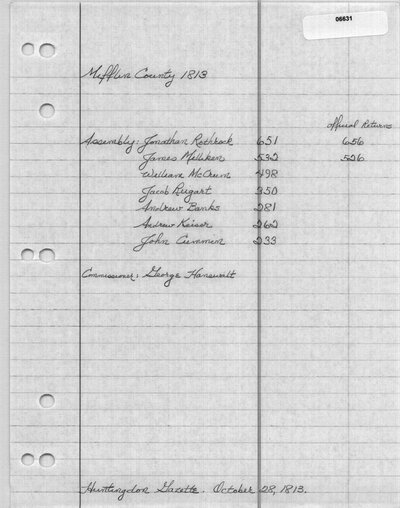 06631
Mifflin County 1813
Official Returns
Assembly: Jonathan Rothrock 651 656
James Milliken 532 526
William McCrum 498
Jacob Bugart 350
Andrew Banks 281
Andrew Keiser 262
John Cummin 233
Commissioner: George Hanawalt
Huntingdon Gazette. October 28, 1813.